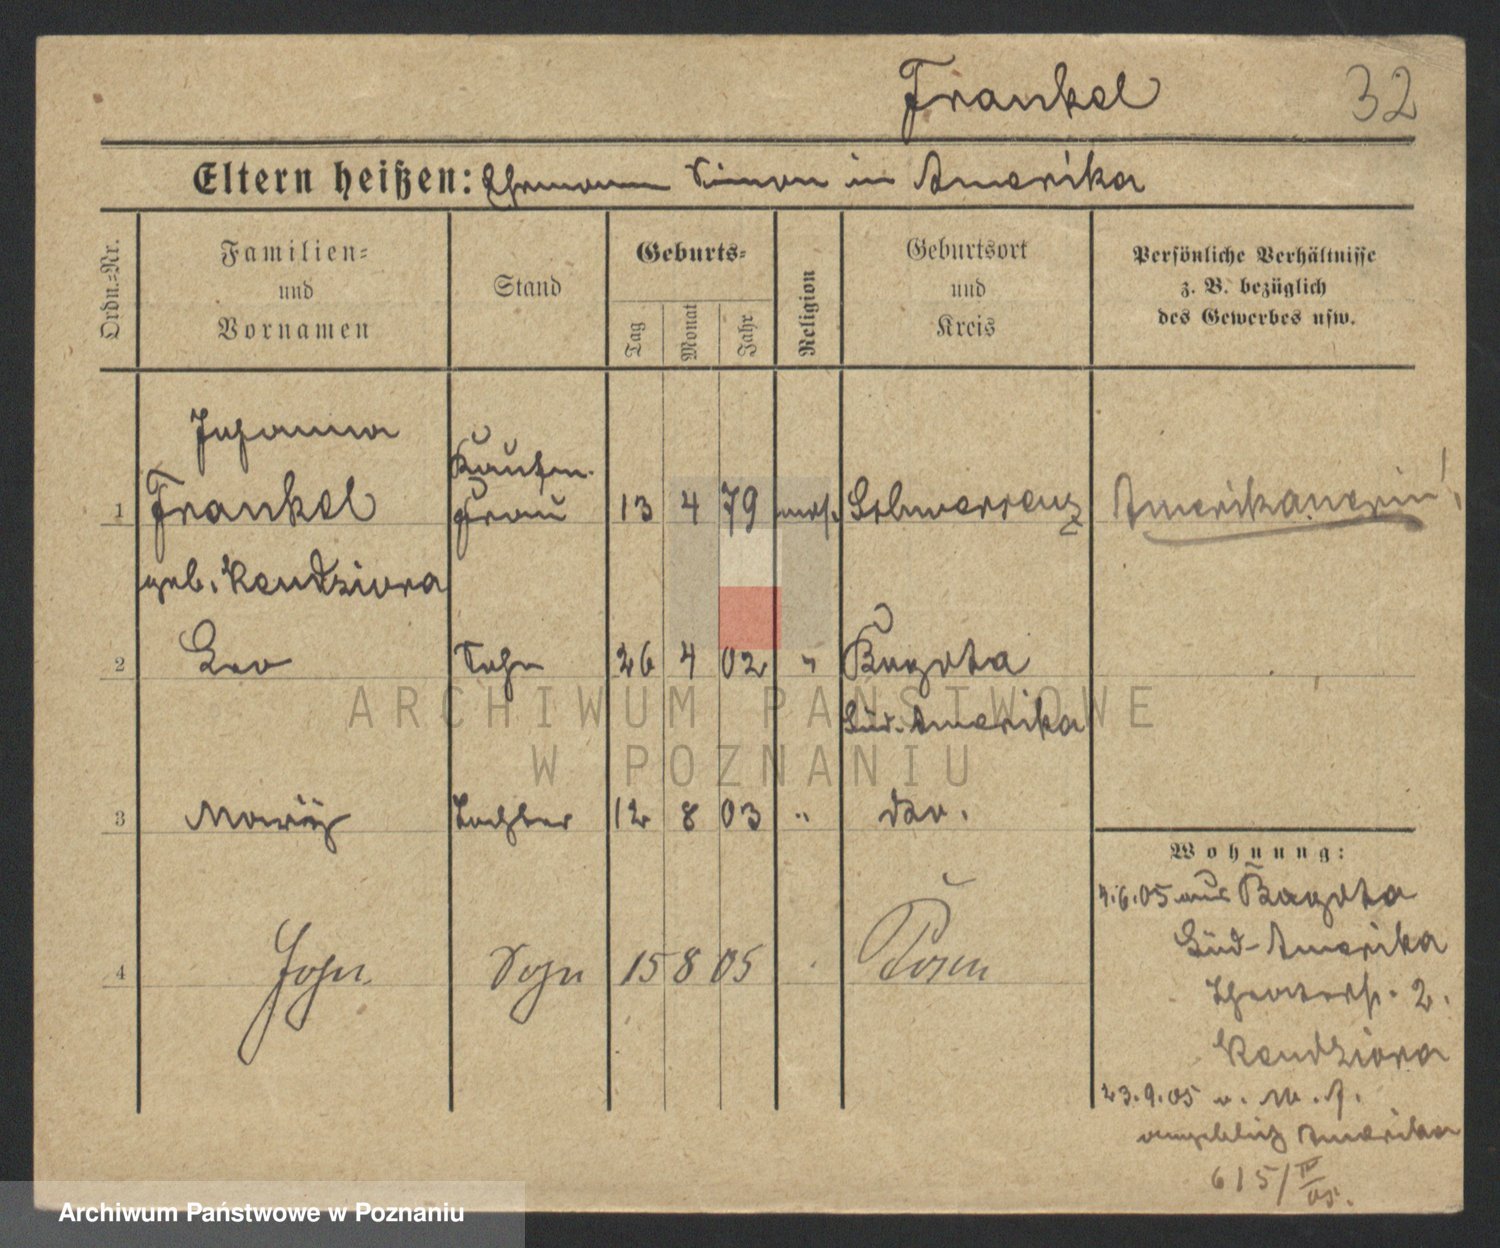 Frankel 32
Eltern heißen: Ehemann Simon in Amerika
Ordn.-Nr.
Familien-
und
Vornamen
Stand
Geburts-
Tag
Monat
Jahr
Religion
Geburtsort
und
Kreis
Persönliche Verhältnisse
z. B. bezüglich
des Gewerbes usw.
Johanna
1 Frankel Kaufm. frau 13 4 79 mos. Schwersenz Amerikanerin!
geb. Kendziora
2 Leo Sohn 26 4 02 " Bogota
Süd-Amerika
3 Tochter 12 8 03 " do.
4 John Sohn 15 8 05 Posen
Wohnung:
4.6.05 aus Bogota
Süd-Amerika
Theaterstr. 2.
Kendziora
23.9.05 u. M. J.
angeblich Amerika
615/IV
05.
ARCHIWUM PAŃSTWOWE
W POZNANIU
Archiwum Państwowe w Poznaniu